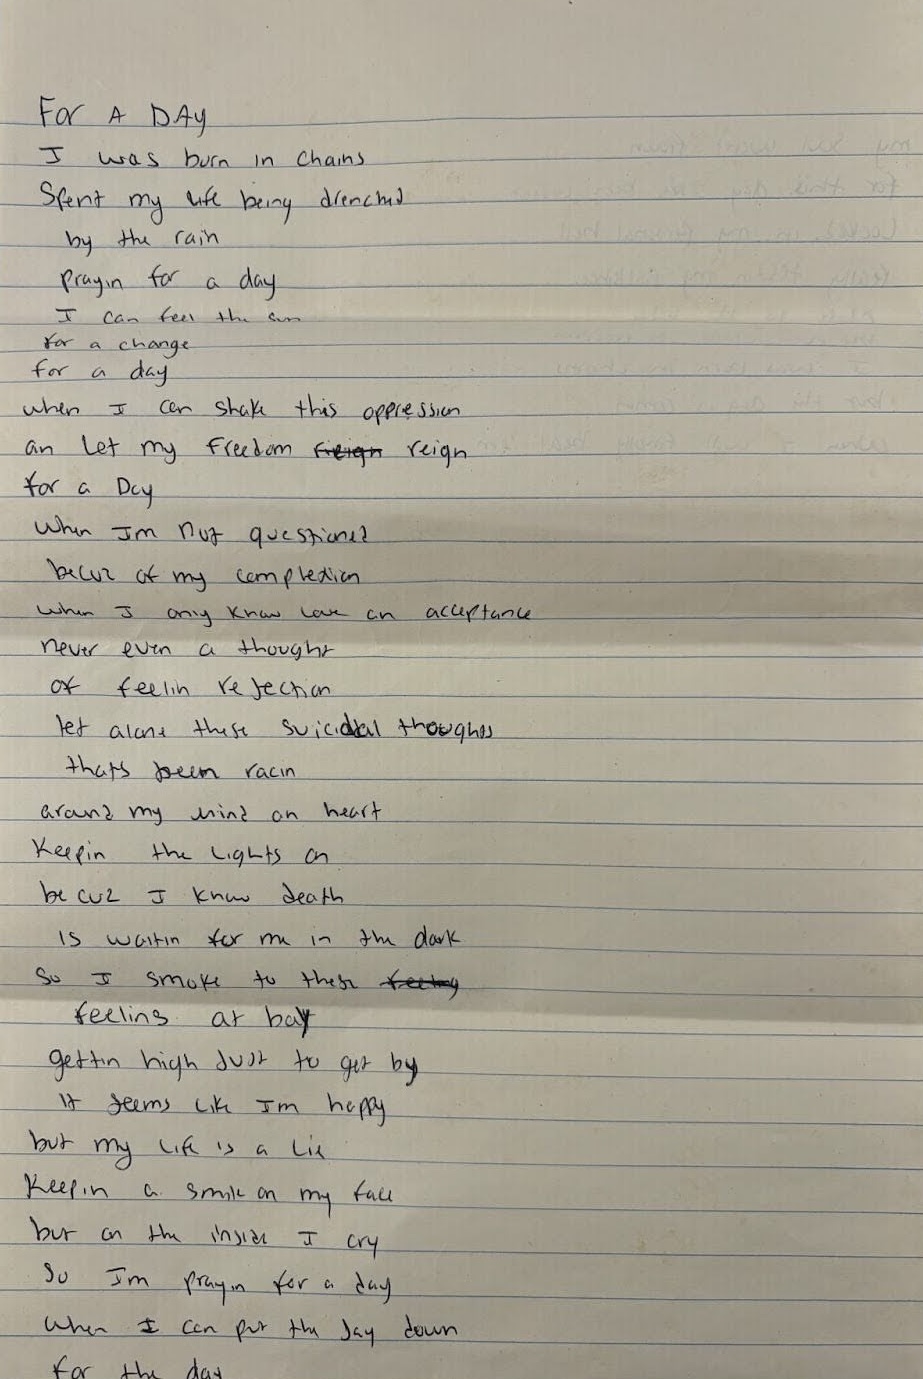 For A DAy
I was burn in chains
Spent my life being drenched
by the rain
prayin for a day
I can feel the sun
for a change
for a day
when I can shake this oppression
an let my freedom reign
for a Day
when Im not questioned
becuz of my complexion
when I only know love an acceptance
never even a thought
of feelin rejection
let alone these suicidal thoughts
thats been racin
around my mind an heart
Keepin the lights on
becuz I know death
is waitin for me in the dark
So I smoke to these
feelins at bay
gettin high just to get by
it seems like Im happy
but my life is a lie
Keepin a smile on my face
but on the inside I cry
So Im prayin for a day
when I can put the Jay down
for the day